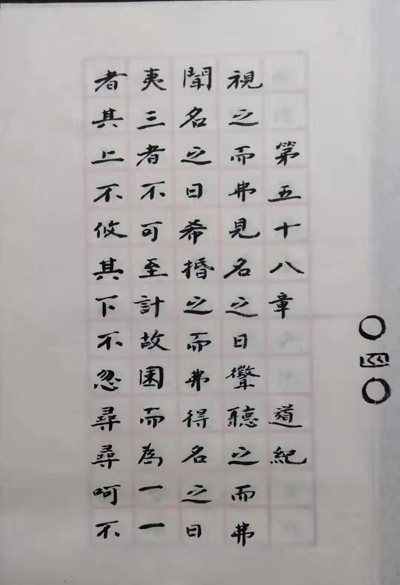 第五十八章 道紀
視之而弗見名之曰聽之而弗
聞名之曰希捪之而弗得名之曰
夷三者不可至計故囷而為一一
者其上不攸其下不忽尋尋呵不
〇四〇